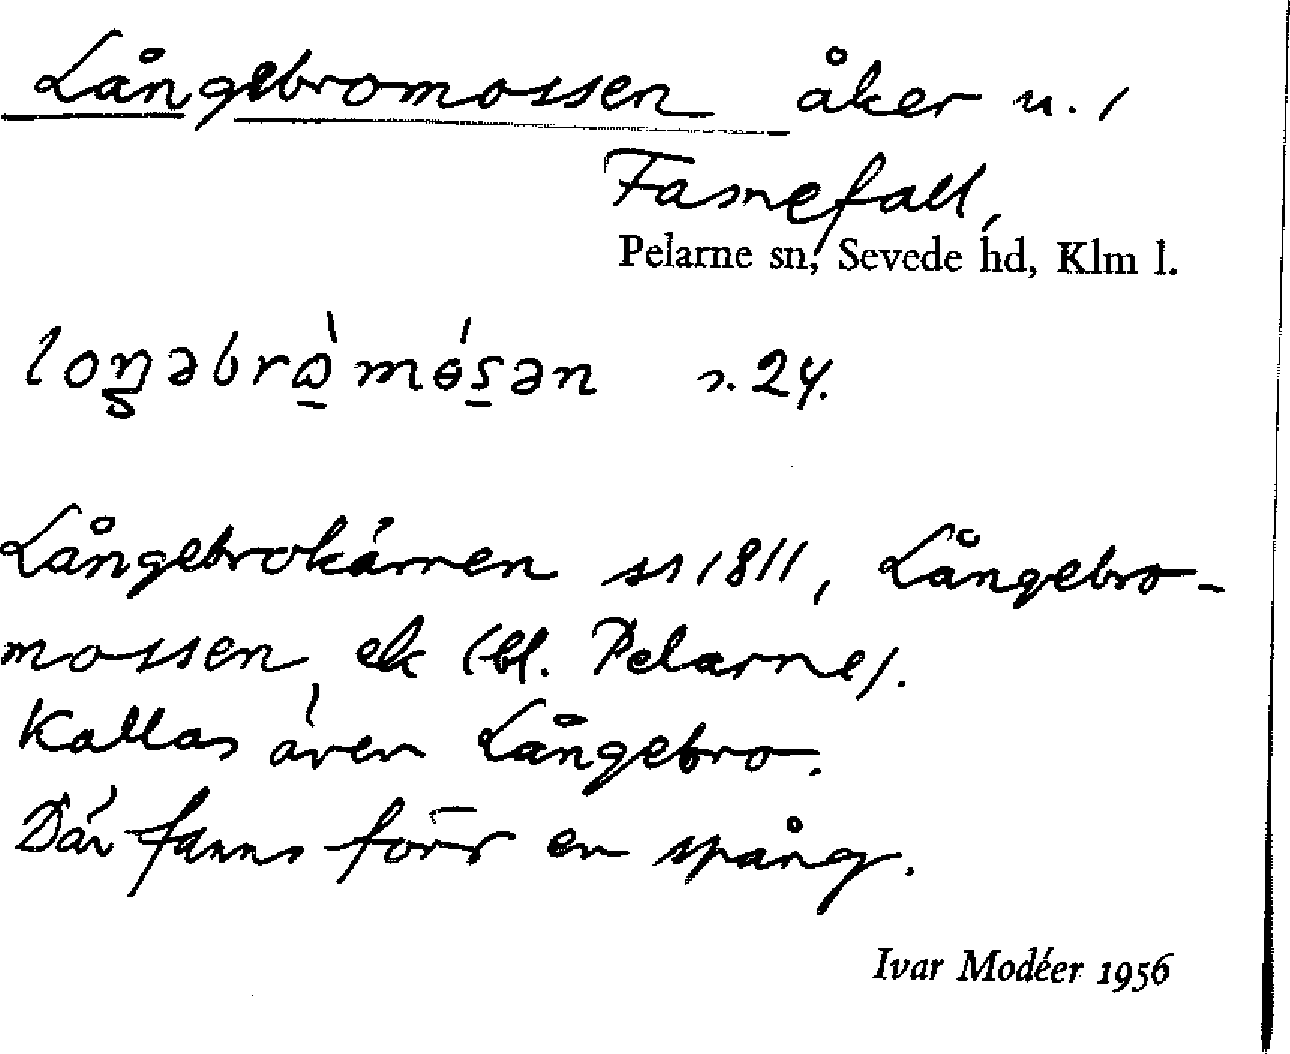 Långebromossen åker u. /
Famefall,
Pelarne sn, Sevede hd, Klm l.
s. 24.
Långebrokärren ss 1811, Långebro-
mossen ek (bl. Pelarne).
Kallas även Långebro.
Där fanns förr en spång.
Ivar Modéer 1956